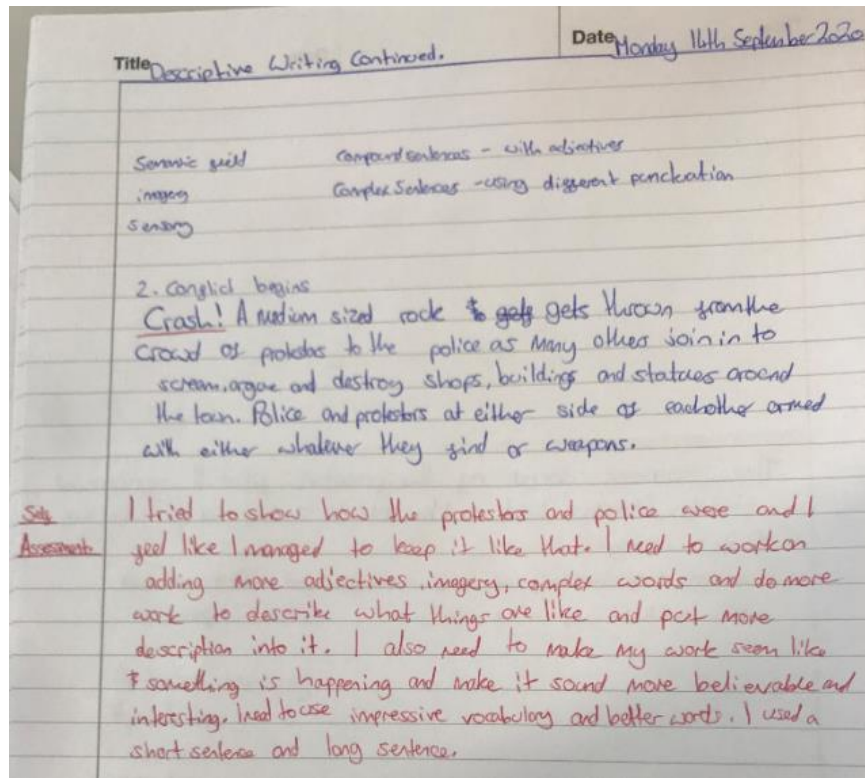 Title Descriptive Writing Continued.
Date Monday 14th September 2020
Semantic field compound sentences - with adjectives
imagery Complex Sentences - using different punctuation
sensory
2. Conflict begins
Crash! A medium sized rock gets gets thrown from the
crowd of protestors to the police as many others join in to
scream, argue and destroy shops, buildings and statues around
the town. Police and protestors at either side of eachother armed
with either whatever they find or weapons.
Self I tried to show how the protestors and police were and I
Assessment feel like I managed to keep it like that. I need to work on
adding more adjectives, imagery, complex words and do more
work to describe what things are like and put more
description into it. I also need to make my work seem like
something is happening and make it sound more believable and
interesting. I need to use impressive vocabulary and better words. I used a
short sentence and long sentence.